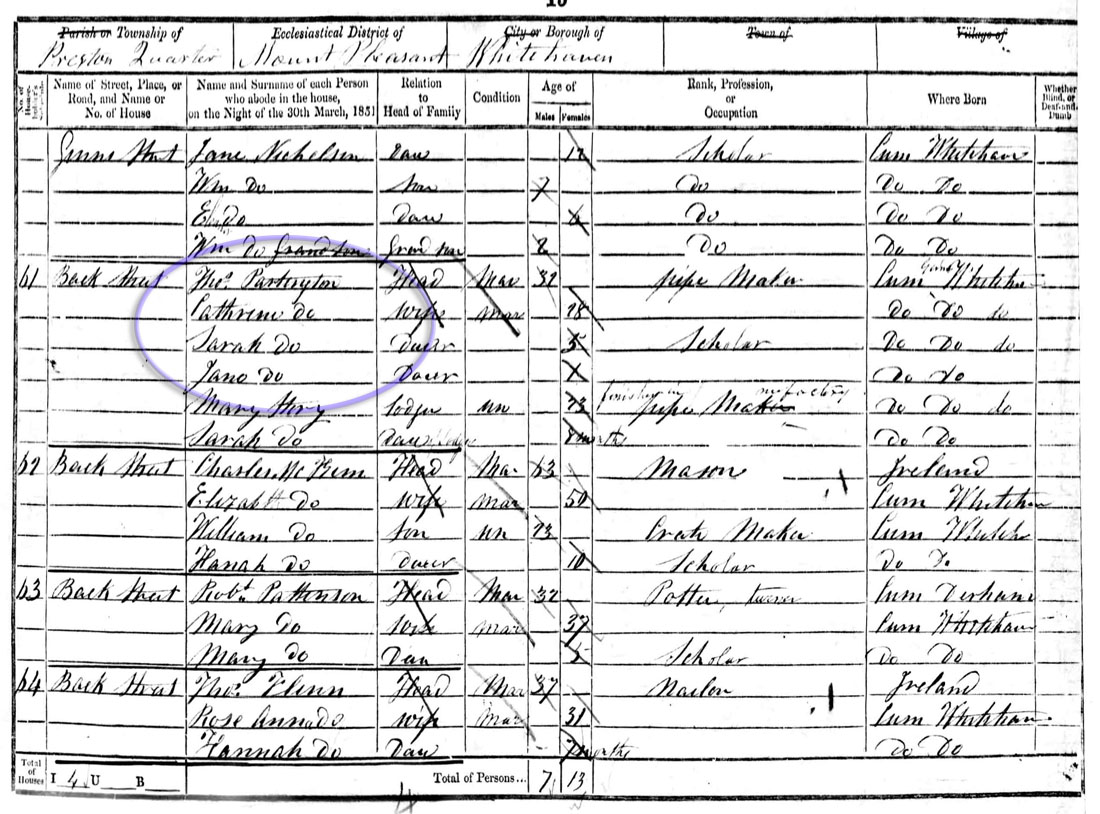 Parish or Township of Ecclesiastical District of City or Borough of Town of Village of
Preston Quarter Mount Pleasant Whitehaven
Name of Street, Place, or Road, and Name or No. of House Name and Surname of each Person who abode in the house, on the Night of the 30th March, 1851 Relation to Head of Family Condition Age of Males Females Rank, Profession, or Occupation Where Born Whether Blind, or Deaf-and-Dumb
Street Jane Nicholson Dau 12 Scholar Cum Whitehaven
Wm Do Son 7 Do Do Do
Do Dau 6 Do Do Do
Wm Do Grandson Grand son 2 Do Do Do
61 Back Street Thos Partington Head Mar 32 pipe Maker Cum
Cathrine do wife mar 28 Do Do do
Sarah Do Dauer 5 Scholar Do Do do
Jane do Dauer Do Do
Mary Story lodger un 23 pipe Maker Do Do do
Sarah Do Dau Do Do
62 Back Street Head Mar 63 Mason Ireland
Elizabth Do wife mar 50 Cum Whitehaven
William Do son un 23 Crate Maker Cum
Hanah do Dauer 10 Scholar Do
63 Back Street Robt Pattinson Head Mar 32 Potter, turner Cum Derham
Mary Do wife mar 37 Cum Whitehaven
Mary Do Dau 5 Scholar Do Do
64 Back Street Thos Flinn Head Mar 37 Ireland
Rose Anna do wife Mar 31 Cum Whitehaven
Hannah Do Dau months Do Do
Total of Houses I 4 U B Total of Persons... 7 13